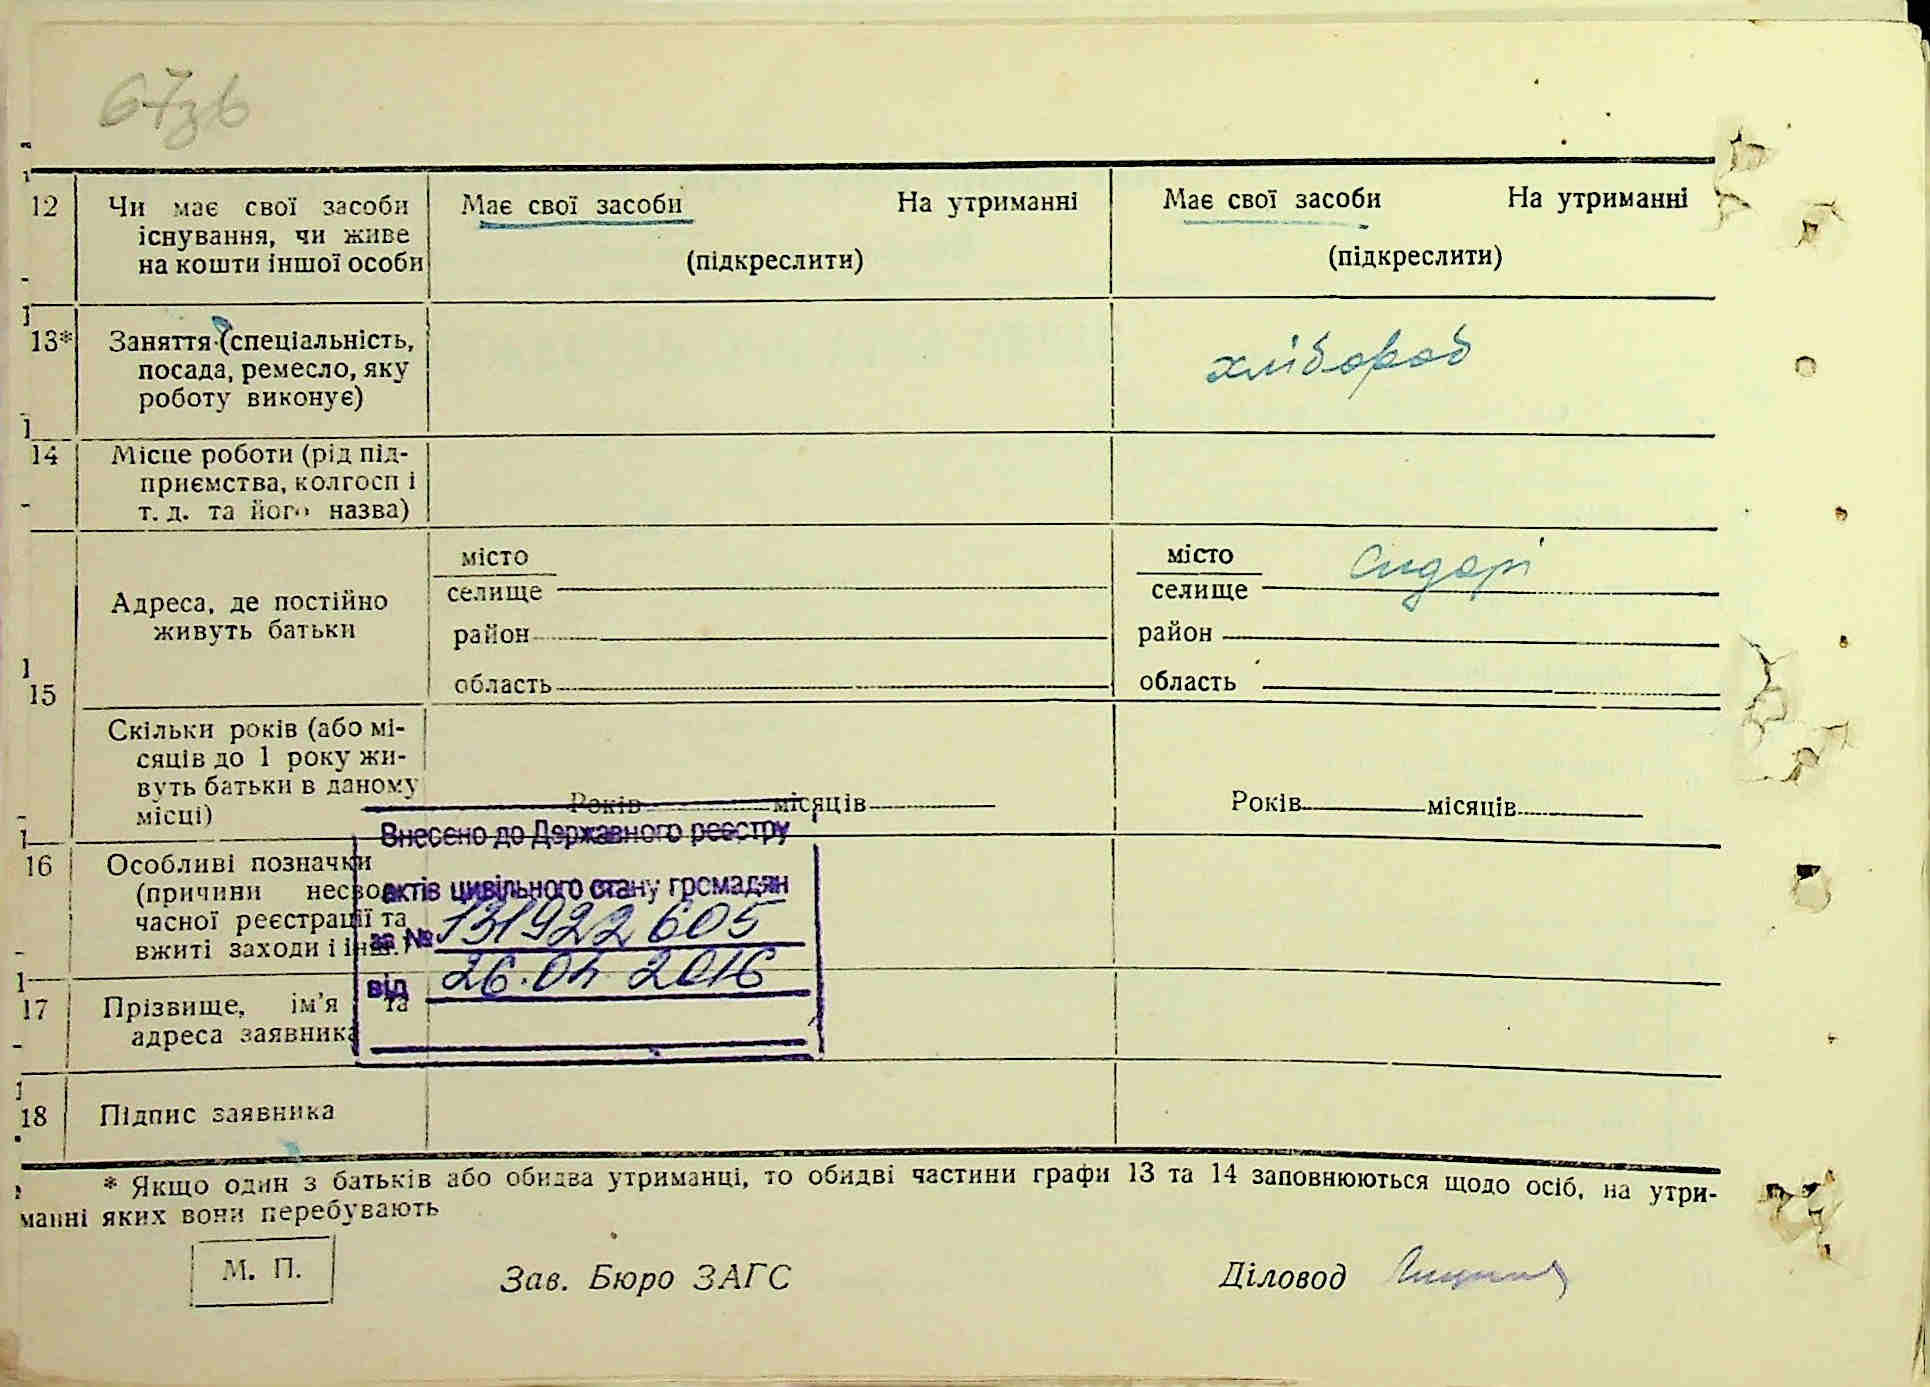 67зв
12
Чи має свої засоби
існування, чи живе
на кошти іншої особи
Має свої засоби На утриманні
(підкреслити)
Має свої засоби На утриманні
(підкреслити)
13*
Заняття (спеціальність,
посада, ремесло, яку
роботу виконує)
хлібороб
14
Місце роботи (рід під-
приємства, колгосп і
т. д. та його назва)
15
Адреса, де постійно
живуть батьки
місто
селище
район
область
місто
селище
район
область
Скільки років (або мі-
сяців до 1 року жи-
вуть батьки в даному
місці)
Років місяців
Років місяців
16
Особливі позначки
(причини несвоє-
часної реєстрації та
вжиті заходи і інш.)
Внесено до Державного реєстру
актів цивільного стану громадян
за № 131922605
від 26.04 2016
17
Прізвище, ім'я та
адреса заявника
18
Підпис заявника
* Якщо один з батьків або обидва утриманці, то обидві частини графи 13 та 14 заповнюються щодо осіб, на утри-
манні яких вони перебувають
М. П.
Зав. Бюро ЗАГС
Діловод